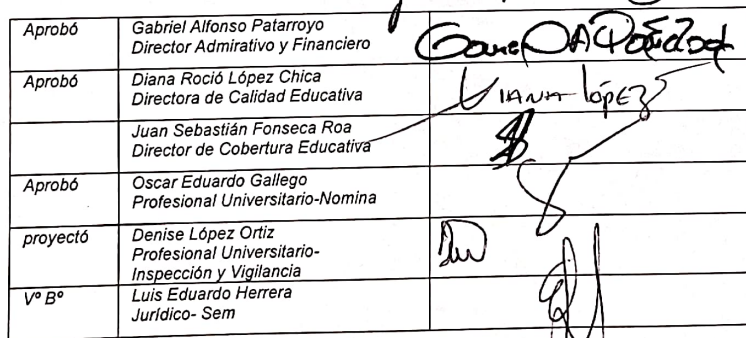 Aprobó
Gabriel Alfonso Patarroyo
Director Admirativo y Financiero
Aprobó
Diana Roció López Chica
Directora de Calidad Educativa
Diana López
Juan Sebastián Fonseca Roa
Director de Cobertura Educativa
Aprobó
Oscar Eduardo Gallego
Profesional Universitario-Nomina
proyectó
Denise López Ortiz
Profesional Universitario-
Inspección y Vigilancia
Vº Bº
Luis Eduardo Herrera
Jurídico- Sem